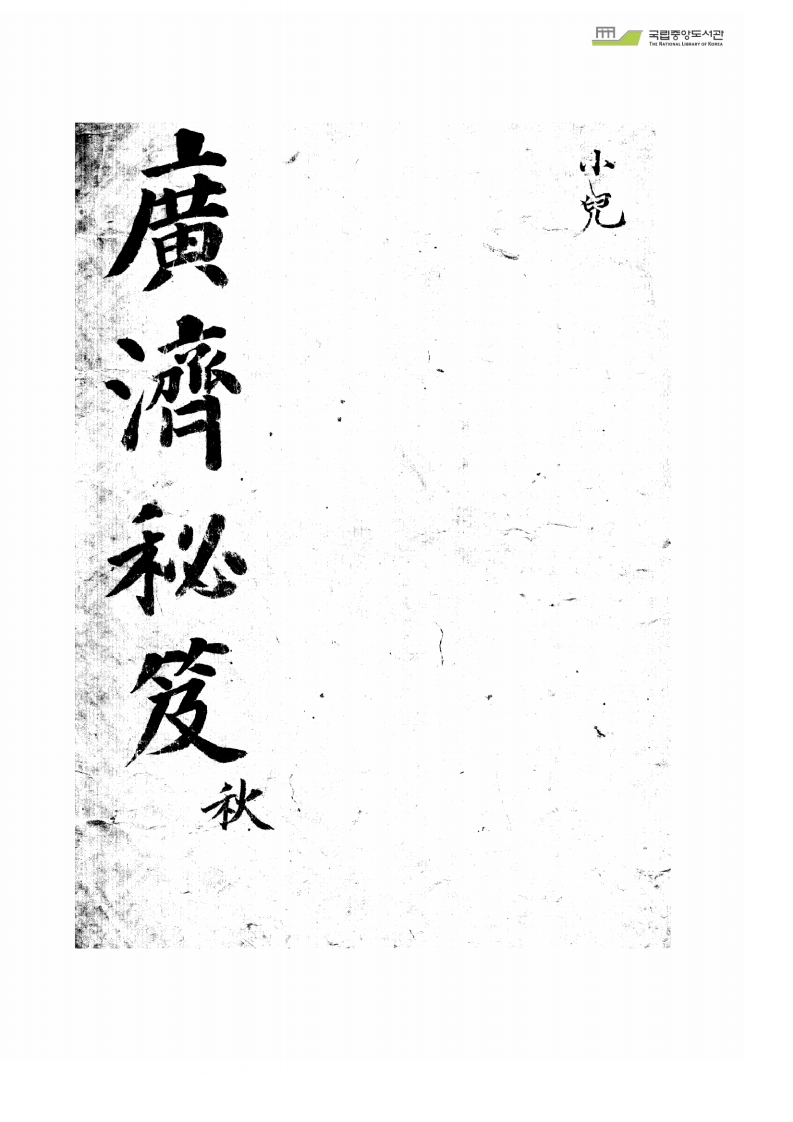 국립중앙도서관
THE NATIONAL LIBRARY OF KOREA
小兒
廣濟秘笈
秋